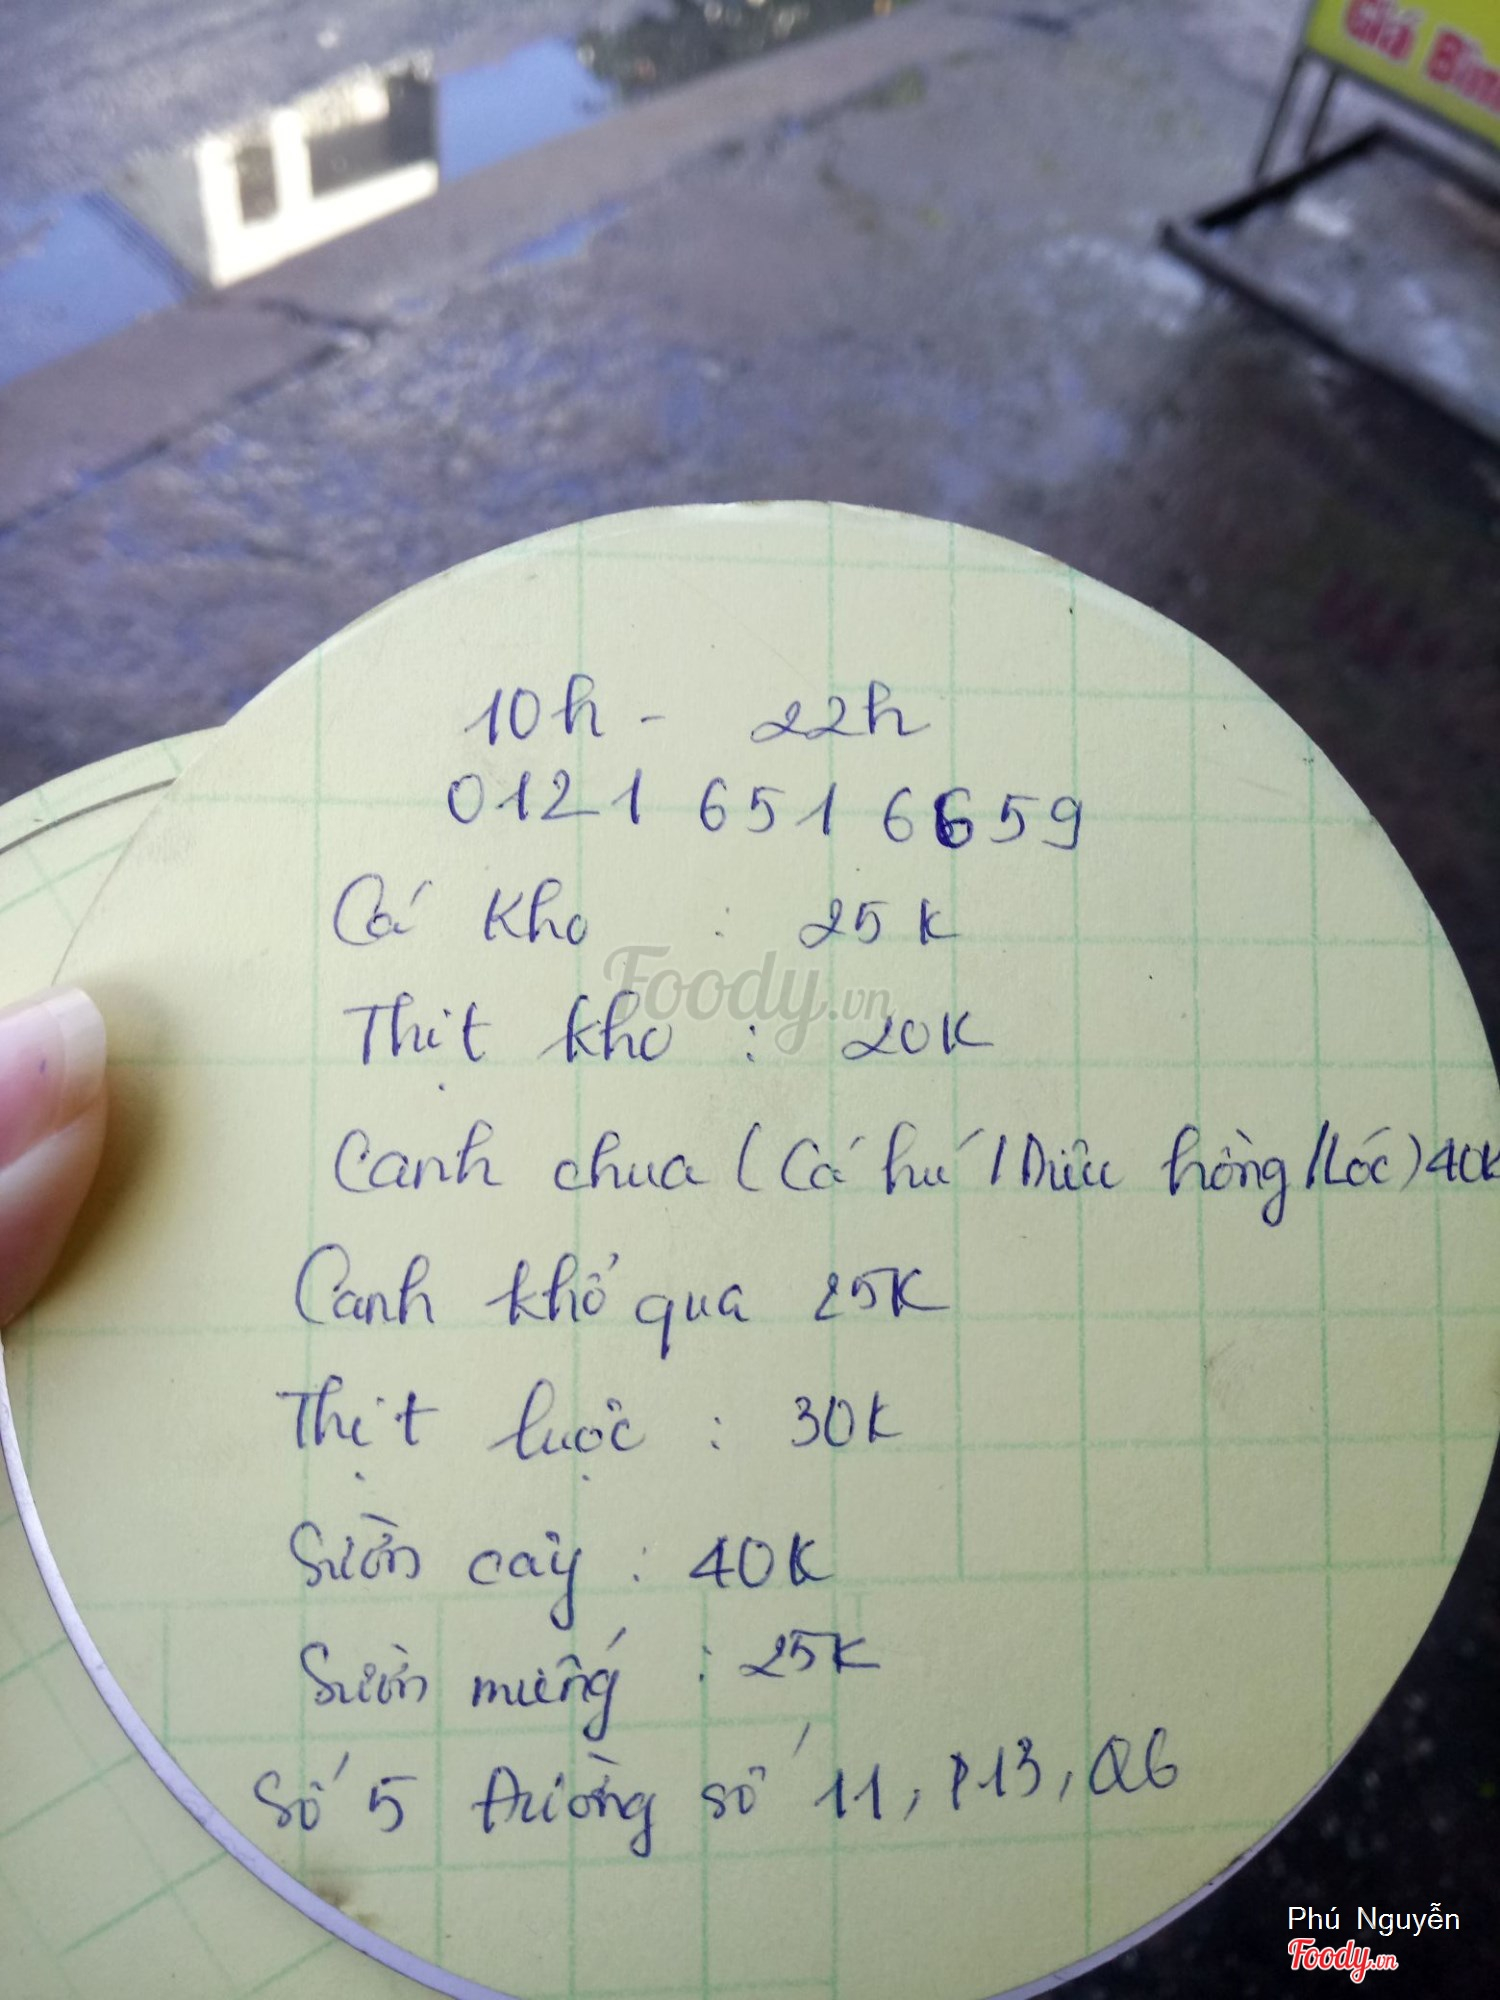 Giá Bình
10h - 22h
0121 651 6659
Cá kho : 25K
Foody.vn
Thịt kho : 20K
Canh chua (Cá hú / Diêu hồng / Lóc) 40K
Canh khổ qua 25K
Thịt luộc : 30K
Sườn cây : 40K
Sườn miếng : 25K
Số 5 đường số 11, P13, Q6
Phú Nguyễn
Foody.vn